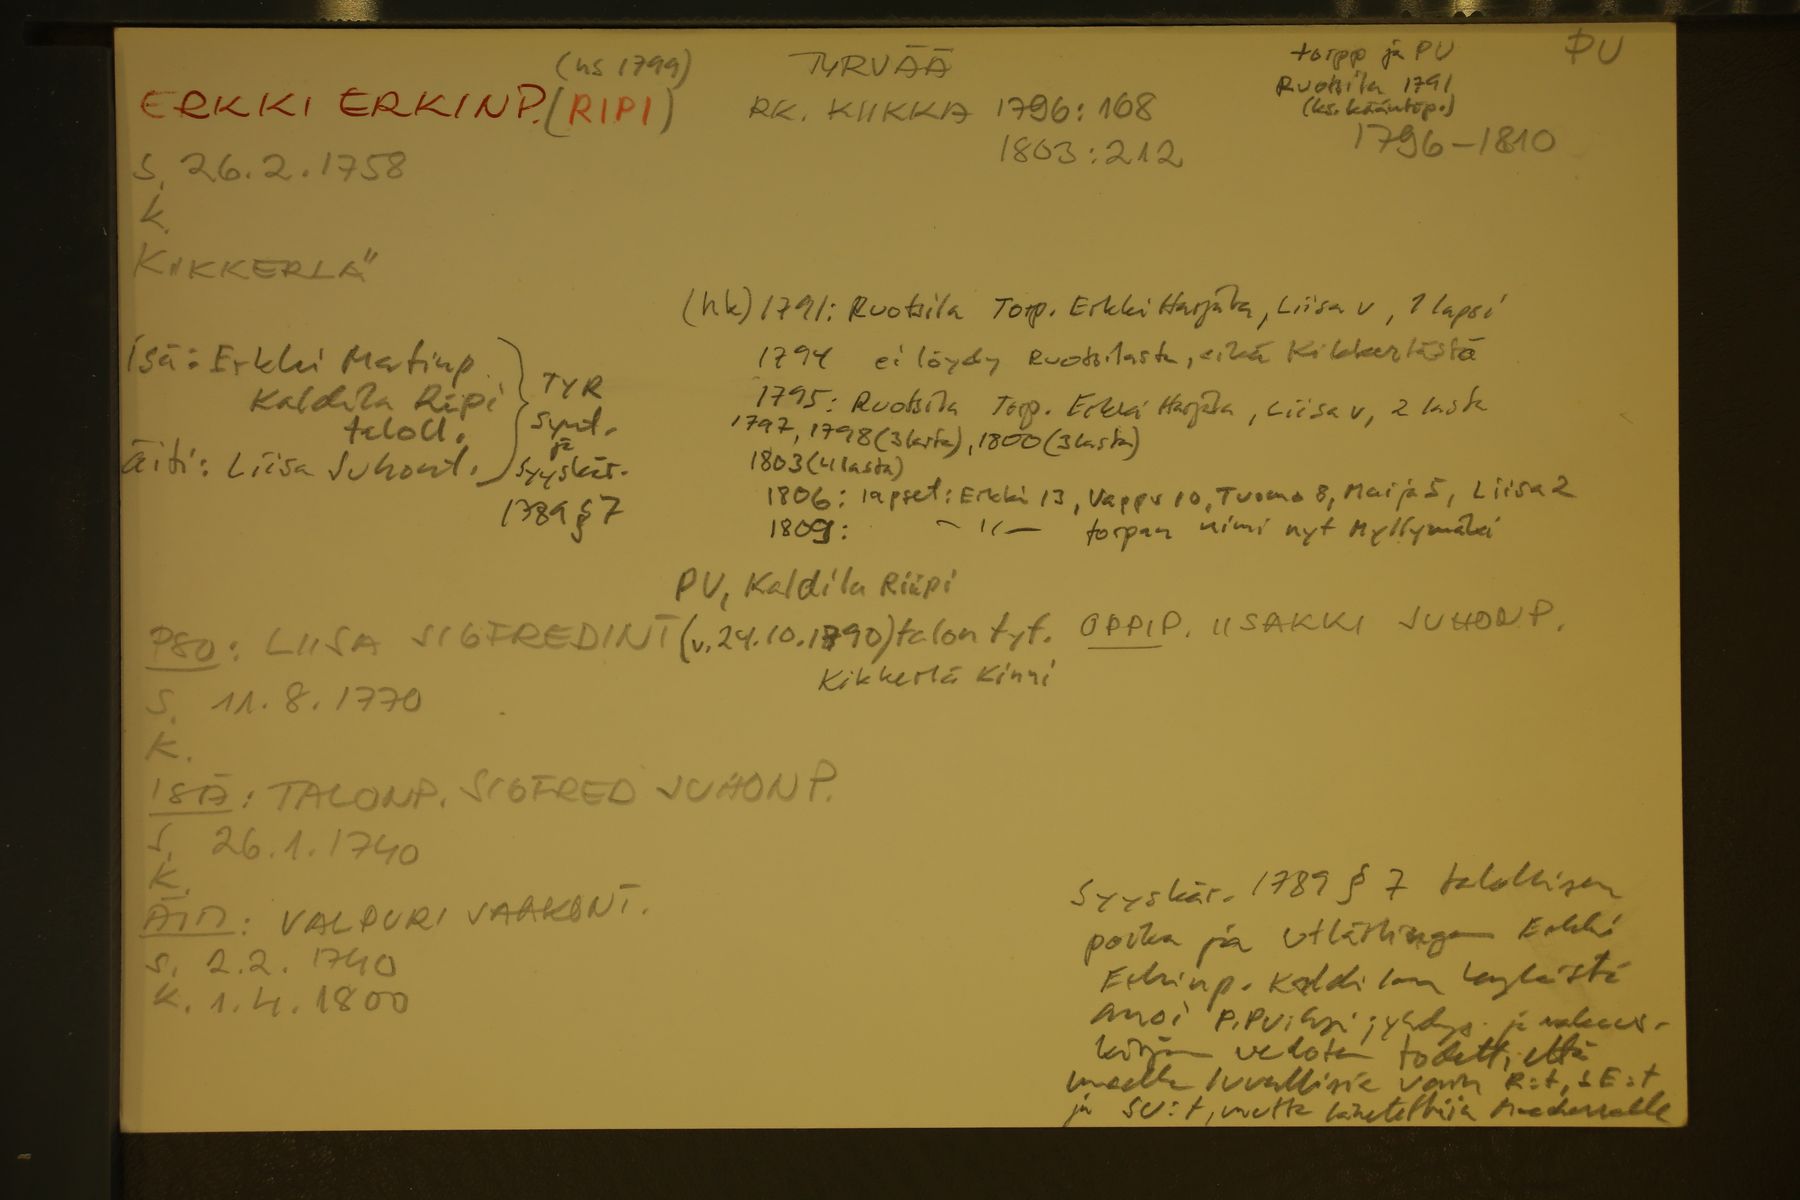 (hs 1799)
ERKKI ERKINP. (RIPI)
TYRVÄÄ
RK. KIIKKA 1796: 168
1803: 212
torpp ja PU
Ruotsila 1791
(ks. kääntöp.)
1796-1810
PU
S. 26.2.1758
K.
KIIKKERLÄ"
isä: Erkki Matinp.
Kaldila Riipi
taloll.
äiti: Liisa Juhont.
TYR
Synt.
ja
Syyskär.
1789 § 7
(hk) 1791: Ruotsila Torp. Erkki Harjula, Liisa v, 1 lapsi
1794 ei löydy Ruotsilasta, eikä Kikkerlästä
1795: Ruotsila Torp. Erkki Harjula, Liisa v, 2 lasta
1797, 1798 (3 lasta), 1800 (3 lasta)
1803 (4 lasta)
1806: lapset: Erkki 13, Vappu 10, Tuomo 8, Maija 5, Liisa 2
1809: ~ " — torpan nimi nyt Myllymäki
PU, Kaldila Riipi
PSO: LIISA SIGFREDINT (v. 24.10.1790) talon tyt. OPPIP. IISAKKI JUHONP.
Kikkerlä Kinni
S. 11.8.1770
K.
ISÄ: TALONP. SIGFRED JUHONP.
S. 26.1.1740
K.
ÄITI: VALPURI JAAKONT.
S. 2.2.1740
K. 1.4.1800
Syyskär. 1789 § 7 talollisen
poika ja utlättinga Erkki
Erkinp. Kaldilan kylästä
anoi ja
kirjan vedoten todett, että
luvallisia R:t, E:t
ja SU:t, mutta lähetettiin